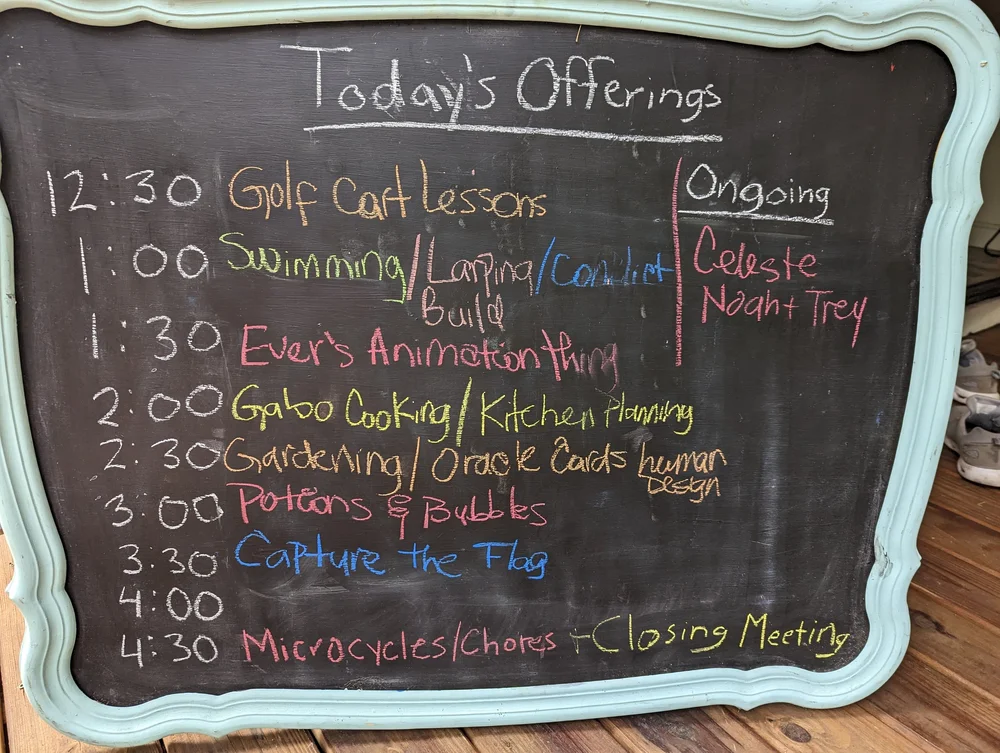 Today's Offerings
12:30 Golf Cart Lessons
1:00 Swimming/Larping/Conflict
Build
1:30 Ever's Animation thing
2:00 Gabo Cooking/Kitchen Planning
2:30 Gardening/Oracle Cards human
Design
3:00 Potions & Bubbles
3:30 Capture the Flag
4:00
4:30 Microcycles/Chores + Closing Meeting
Ongoing
Celeste
Noah + Trey